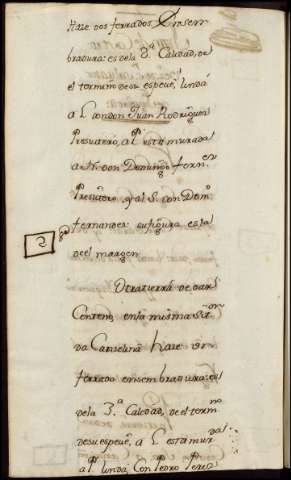 Haze dos ferrados Ensem
bradura: es dela 3ª Calidad, de
el termino de su espeue, linda
a L. con don Juan Rodriguez
Presuitero, al P. esta murada
a N. don Domingo fern.
Presuitero, y al S. con Dom.º
fernandez su figura es la
de el margen
2
Otra tierra de dar
Centeno, en la misma
da Haze un
ferrado en sembradura: es
de la 3.ª Calidad, de el term.no
de su espeue, a L. esta mur.da
a P. linda Con Pedro Perez